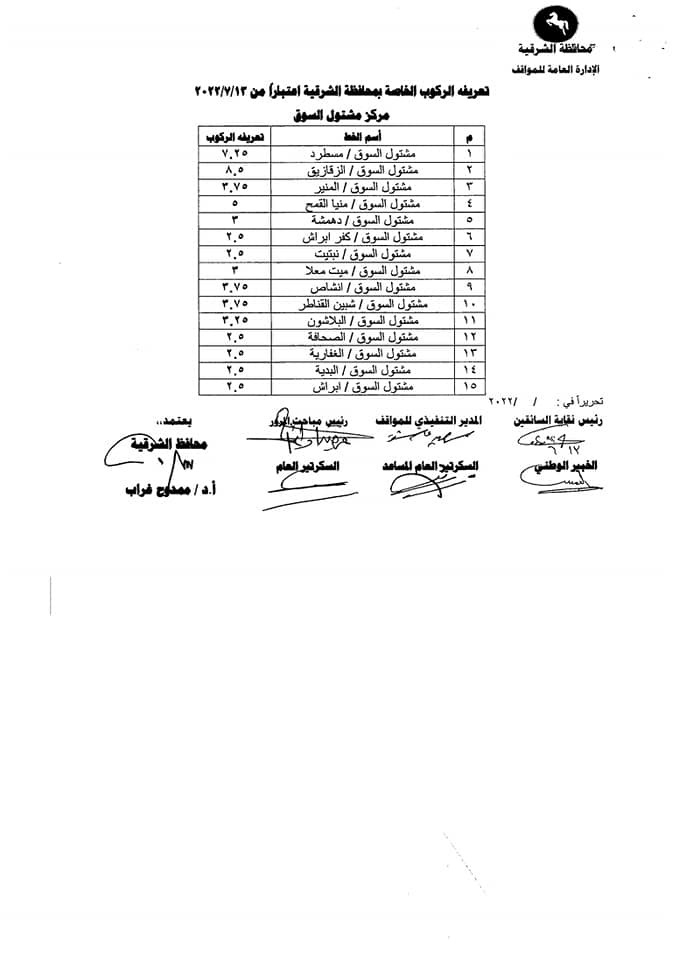 محافظة الشرقية
الإدارة العامة للمواقف
تعريفه الركوب الخاصة بمحافظة الشرقية اعتباراً من ٢٠٢٢/٧/١٣
مركز مشتول السوق
م أسم الخط تعريفه الركوب
١ مشتول السوق / مسطرد ٧.٢٥
٢ مشتول السوق / الزقازيق ٨.٥
٣ مشتول السوق / المنير ٣.٧٥
٤ مشتول السوق / منيا القمح ٥
٥ مشتول السوق / دهمشة ٣
٦ مشتول السوق / كفر ابراش ٢.٥
٧ مشتول السوق / نبتيت ٢.٥
٨ مشتول السوق / ميت معلا ٣
٩ مشتول السوق / انشاص ٣.٧٥
١٠ مشتول السوق / شبين القناطر ٣.٧٥
١١ مشتول السوق / البلاشون ٣.٢٥
١٢ مشتول السوق / الصحافة ٢.٥
١٣ مشتول السوق / الغفارية ٢.٥
١٤ مشتول السوق / البدية ٢.٥
١٥ مشتول السوق / ابراش ٢.٥
تحريراً في : / /٢٠٢٢
رئيس نقابة السائقين المدير التنفيذي للمواقف رئيس مباحث المرور يعتمد،،
محافظ الشرقية
الخبير الوطني السكرتير العام المساعد السكرتير العام
أ.د / ممدوح غراب